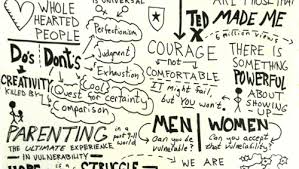 WHOLE
HEARTED
PEOPLE
IS UNIVERSAL
Perfectionism
Judgment
Exhaustion
Do's
Dont's
CREATIVITY
KILLED BY
Cool
Quest for certainty
Comparison
ARE THOSE THAT
TED MADE ME
6 million views
COURAGE
not
COMFORTABLE
It might fail,
but YOU won't
THERE IS
SOMETHING
POWERFUL
ABOUT
SHOWING
UP
PARENTING
THE ULTIMATE EXPERIENCE
IN VULNERABILITY
in a
world
MEN
Can you be
vulnerable?
WOMEN
Can you accept
that vulnerability?
STRUGGLE
WE ARE